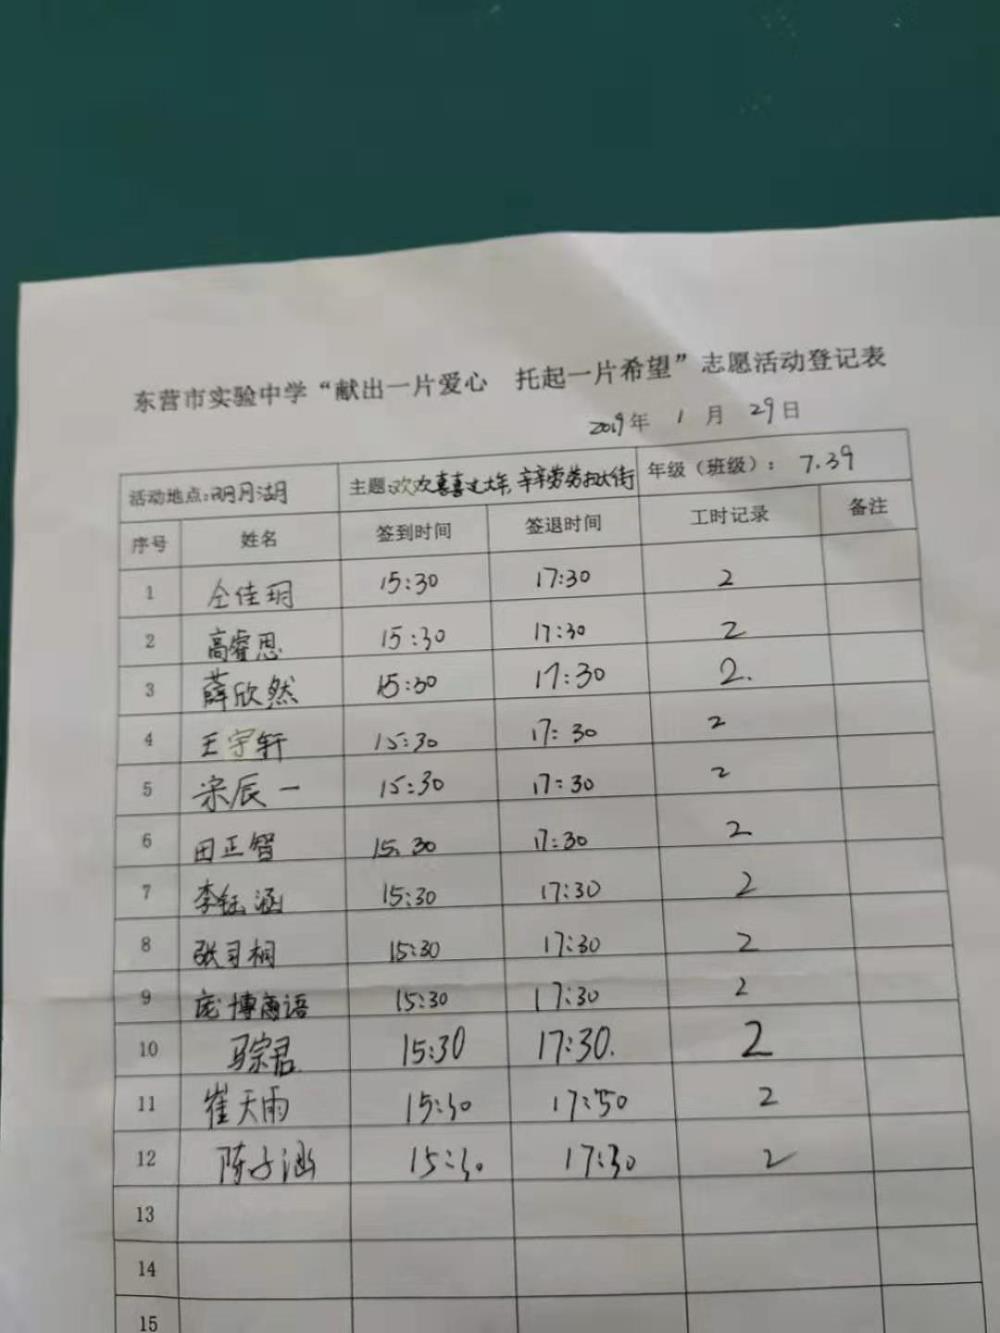 东营市实验中学“献出一片爱心 托起一片希望”志愿活动登记表
2019年 1月 29日
活动地点:明月湖 主题:欢欢喜喜过大年,辛辛劳劳扫大街 年级（班级）: 7.39
序号 姓名 签到时间 签退时间 工时记录 备注
1 仝佳玥 15:30 17:30 2
2 高睿思 15:30 17:30 2
3 薛欣然 15:30 17:30 2.
4 王宇轩 15:30 17:30 2
5 宋辰一 15:30 17:30 2
6 田正智 15:30 17:30 2
7 李钰涵 15:30 17:30 2
8 张司桐 15:30 17:30 2
9 庞博商语 15:30 17:30 2
10 马宗君 15:30 17:30. 2
11 崔天雨 15:30 17:50 2
12 陈子涵 15:30 17:30 2
13
14
15